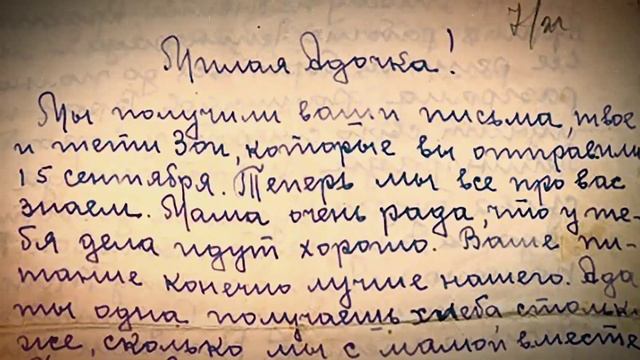 7/XI
Милая Адочка!
Мы получили ваши письма, твое
и тети Зои, которые вы отправили
15 сентября. Теперь мы все про вас
знаем. Мама очень рада, что у те-
бя дела идут хорошо. Ваше пи-
тание конечно лучше нашего. Ада
ты одна получаешь хлеба столько
же, сколько мы с мамой вместе